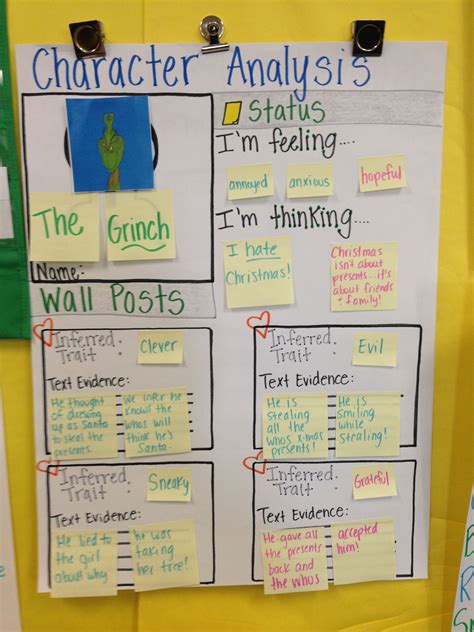 Character Analysis
Status
I'm feeling....
annoyed
anxious
hopeful
The
Grinch
Name:
I'm thinking....
I hate
Christmas!
Christmas
isn't about
presents...it's
about friends
+ family!
Wall Posts
Inferred
Trait:
Clever
Text Evidence:
He thought
of dressing
up as Santa
to steal the
presents.
We infer he
knows the
whos will
think he's
Santa.
Inferred
Trait:
Evil
Text Evidence:
He is
stealing
all the
whos x-mas
presents!
He is
smiling
while
stealing!
Inferred
Trait:
Sneaky
Text Evidence:
He lied to
the girl
about why
he was
taking
her tree!
Inferred
Trait:
Grateful
Text Evidence:
He gave all
the presents
back and
the whos
accepted
him!